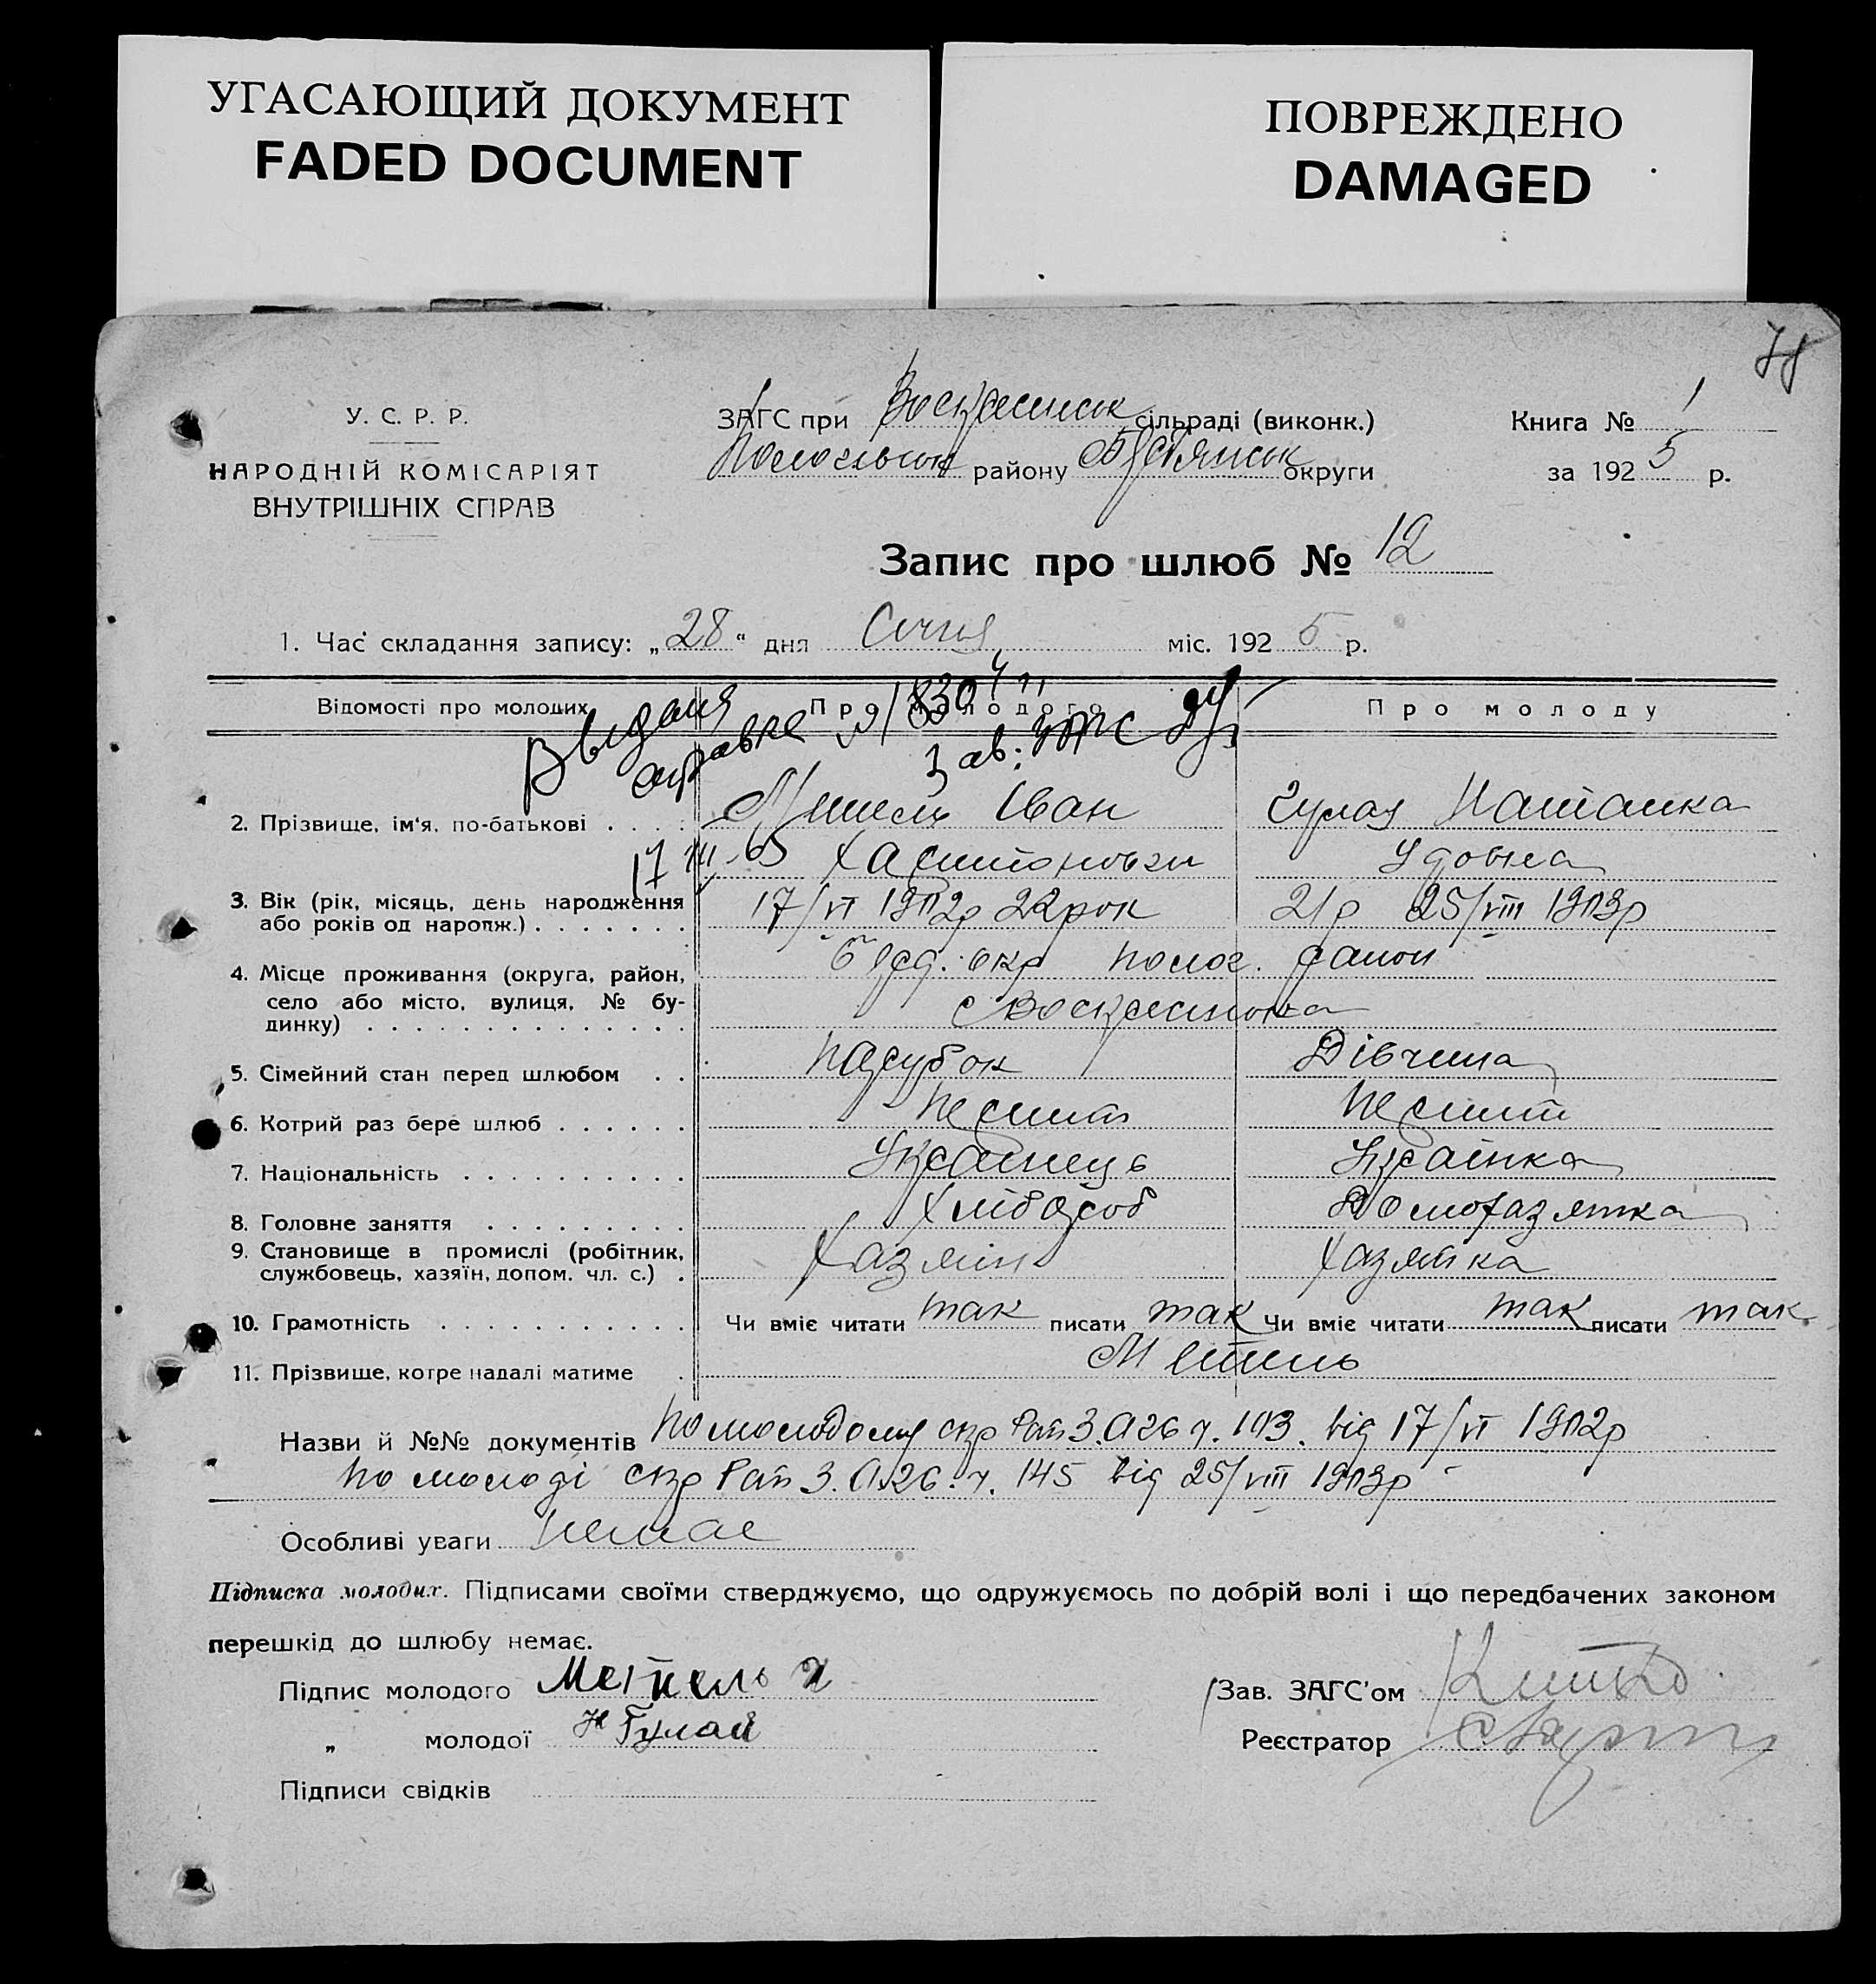 УГАСАЮЩИЙ ДОКУМЕНТ
FADED DOCUMENT
ПОВРЕЖДЕНО
DAMAGED
У. С. Р. Р.
НАРОДНІЙ КОМІСАРІЯТ
ВНУТРІШНІХ СПРАВ
ЗАГС при сільраді (виконк.)
району округи
Книга № 1
за 1925 р.
Запис про шлюб № 12
1. Час складання запису: „28“ дня Січня міс. 1925 р.
Відомості про молодих Про молодого Про молоду
Выдана
справка № 1830
Зав. ЗАГС
17
2. Прізвище, ім‘я, по-батькові . . . . Іван Гулай Наталка
Харитонови
3. Вік (рік, місяць, день народження 17/VI 1902р 22рок 21р 25/VIII 1903р
або років од нарощж.) . . . . . . .
4. Місце проживання (округа, район, окр полог. район
село або місто, вулиця, № бу-
динку) . . . . . . . . . . . . . . с Воскресенка
5. Сімейний стан перед шлюбом . . Парубок Дівчина
6. Котрий раз бере шлюб . . . . . . Перший Перший
7. Національність . . . . . . . . . . Українець Українка
8. Головне заняття . . . . . . . . . Хлібороб Домохазяйка
9. Становище в промислі (робітник, Хазяїн Хазяйка
службовець, хазяїн, допом. чл. с.) .
10. Грамотність . . . . . . . . . . . Чи вміє читати так писати так Чи вміє читати так писати так
11. Прізвище, котре надалі матиме . Метель
Назви й №№ документів По молодому 103. від 17/VI 1902р
По молоді 145 від 25/VIII 1903р
Особливі уваги немає
Підписка молодих. Підписами своїми стверджуємо, що одружуємось по добрій волі і що передбачених законом
перешкід до шлюбу немає.
Підпис молодого
„ молодої Н Гулай
Підписи свідків
Зав. ЗАГС’ом
Реєстратор